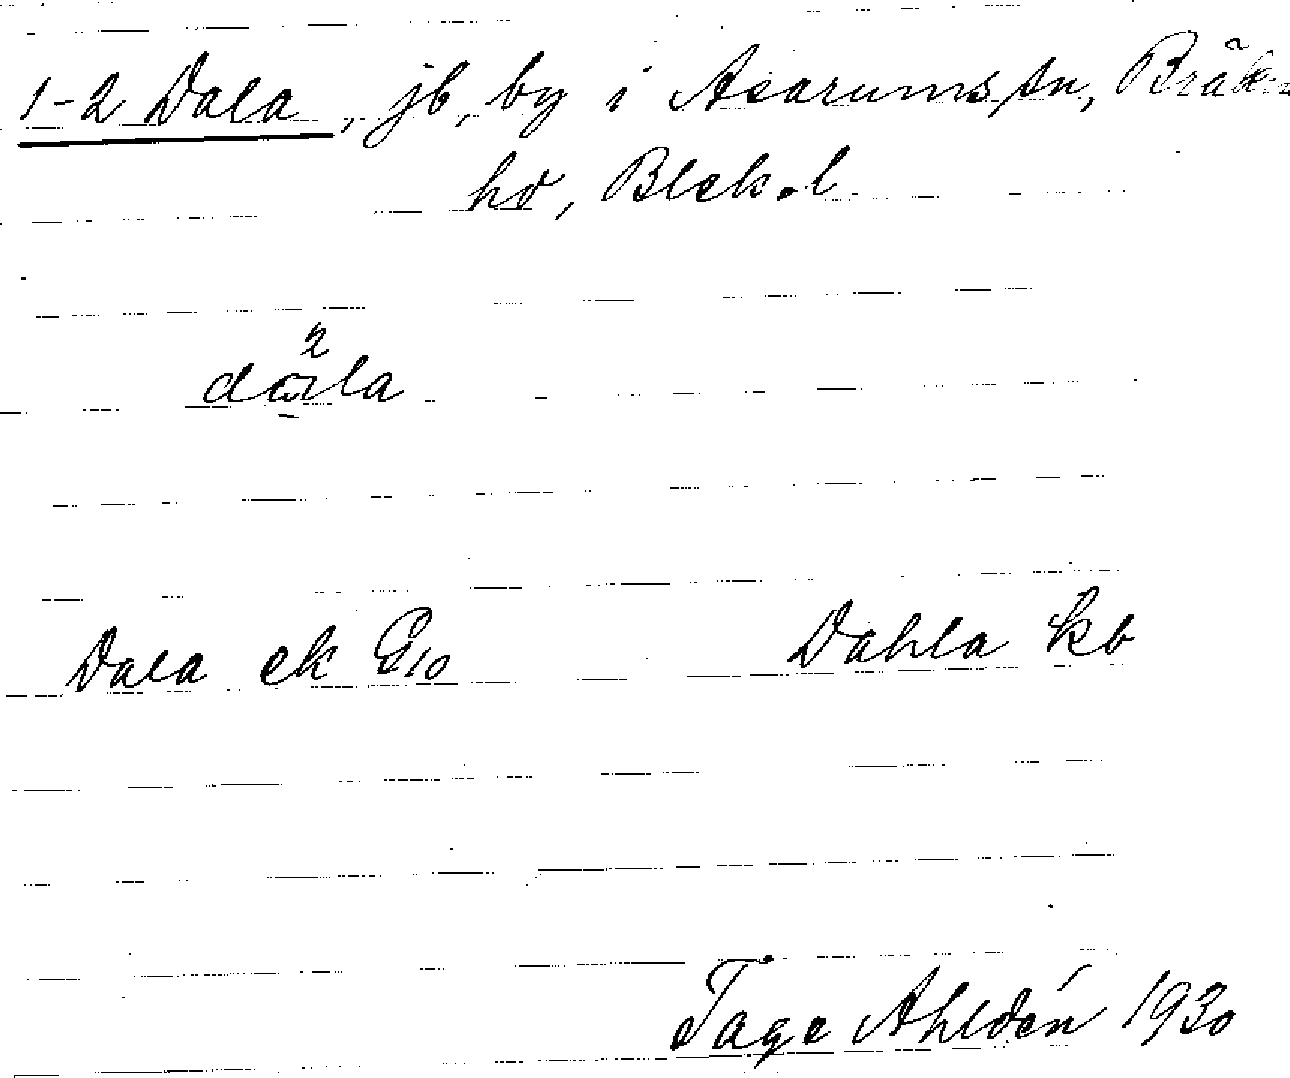 1-2 Dala, jb, by i Asarums sn, Bräkne
hd, Blek. l
2
dala
Dala ek G10 Dahla kb
Tage Ahldén 1930